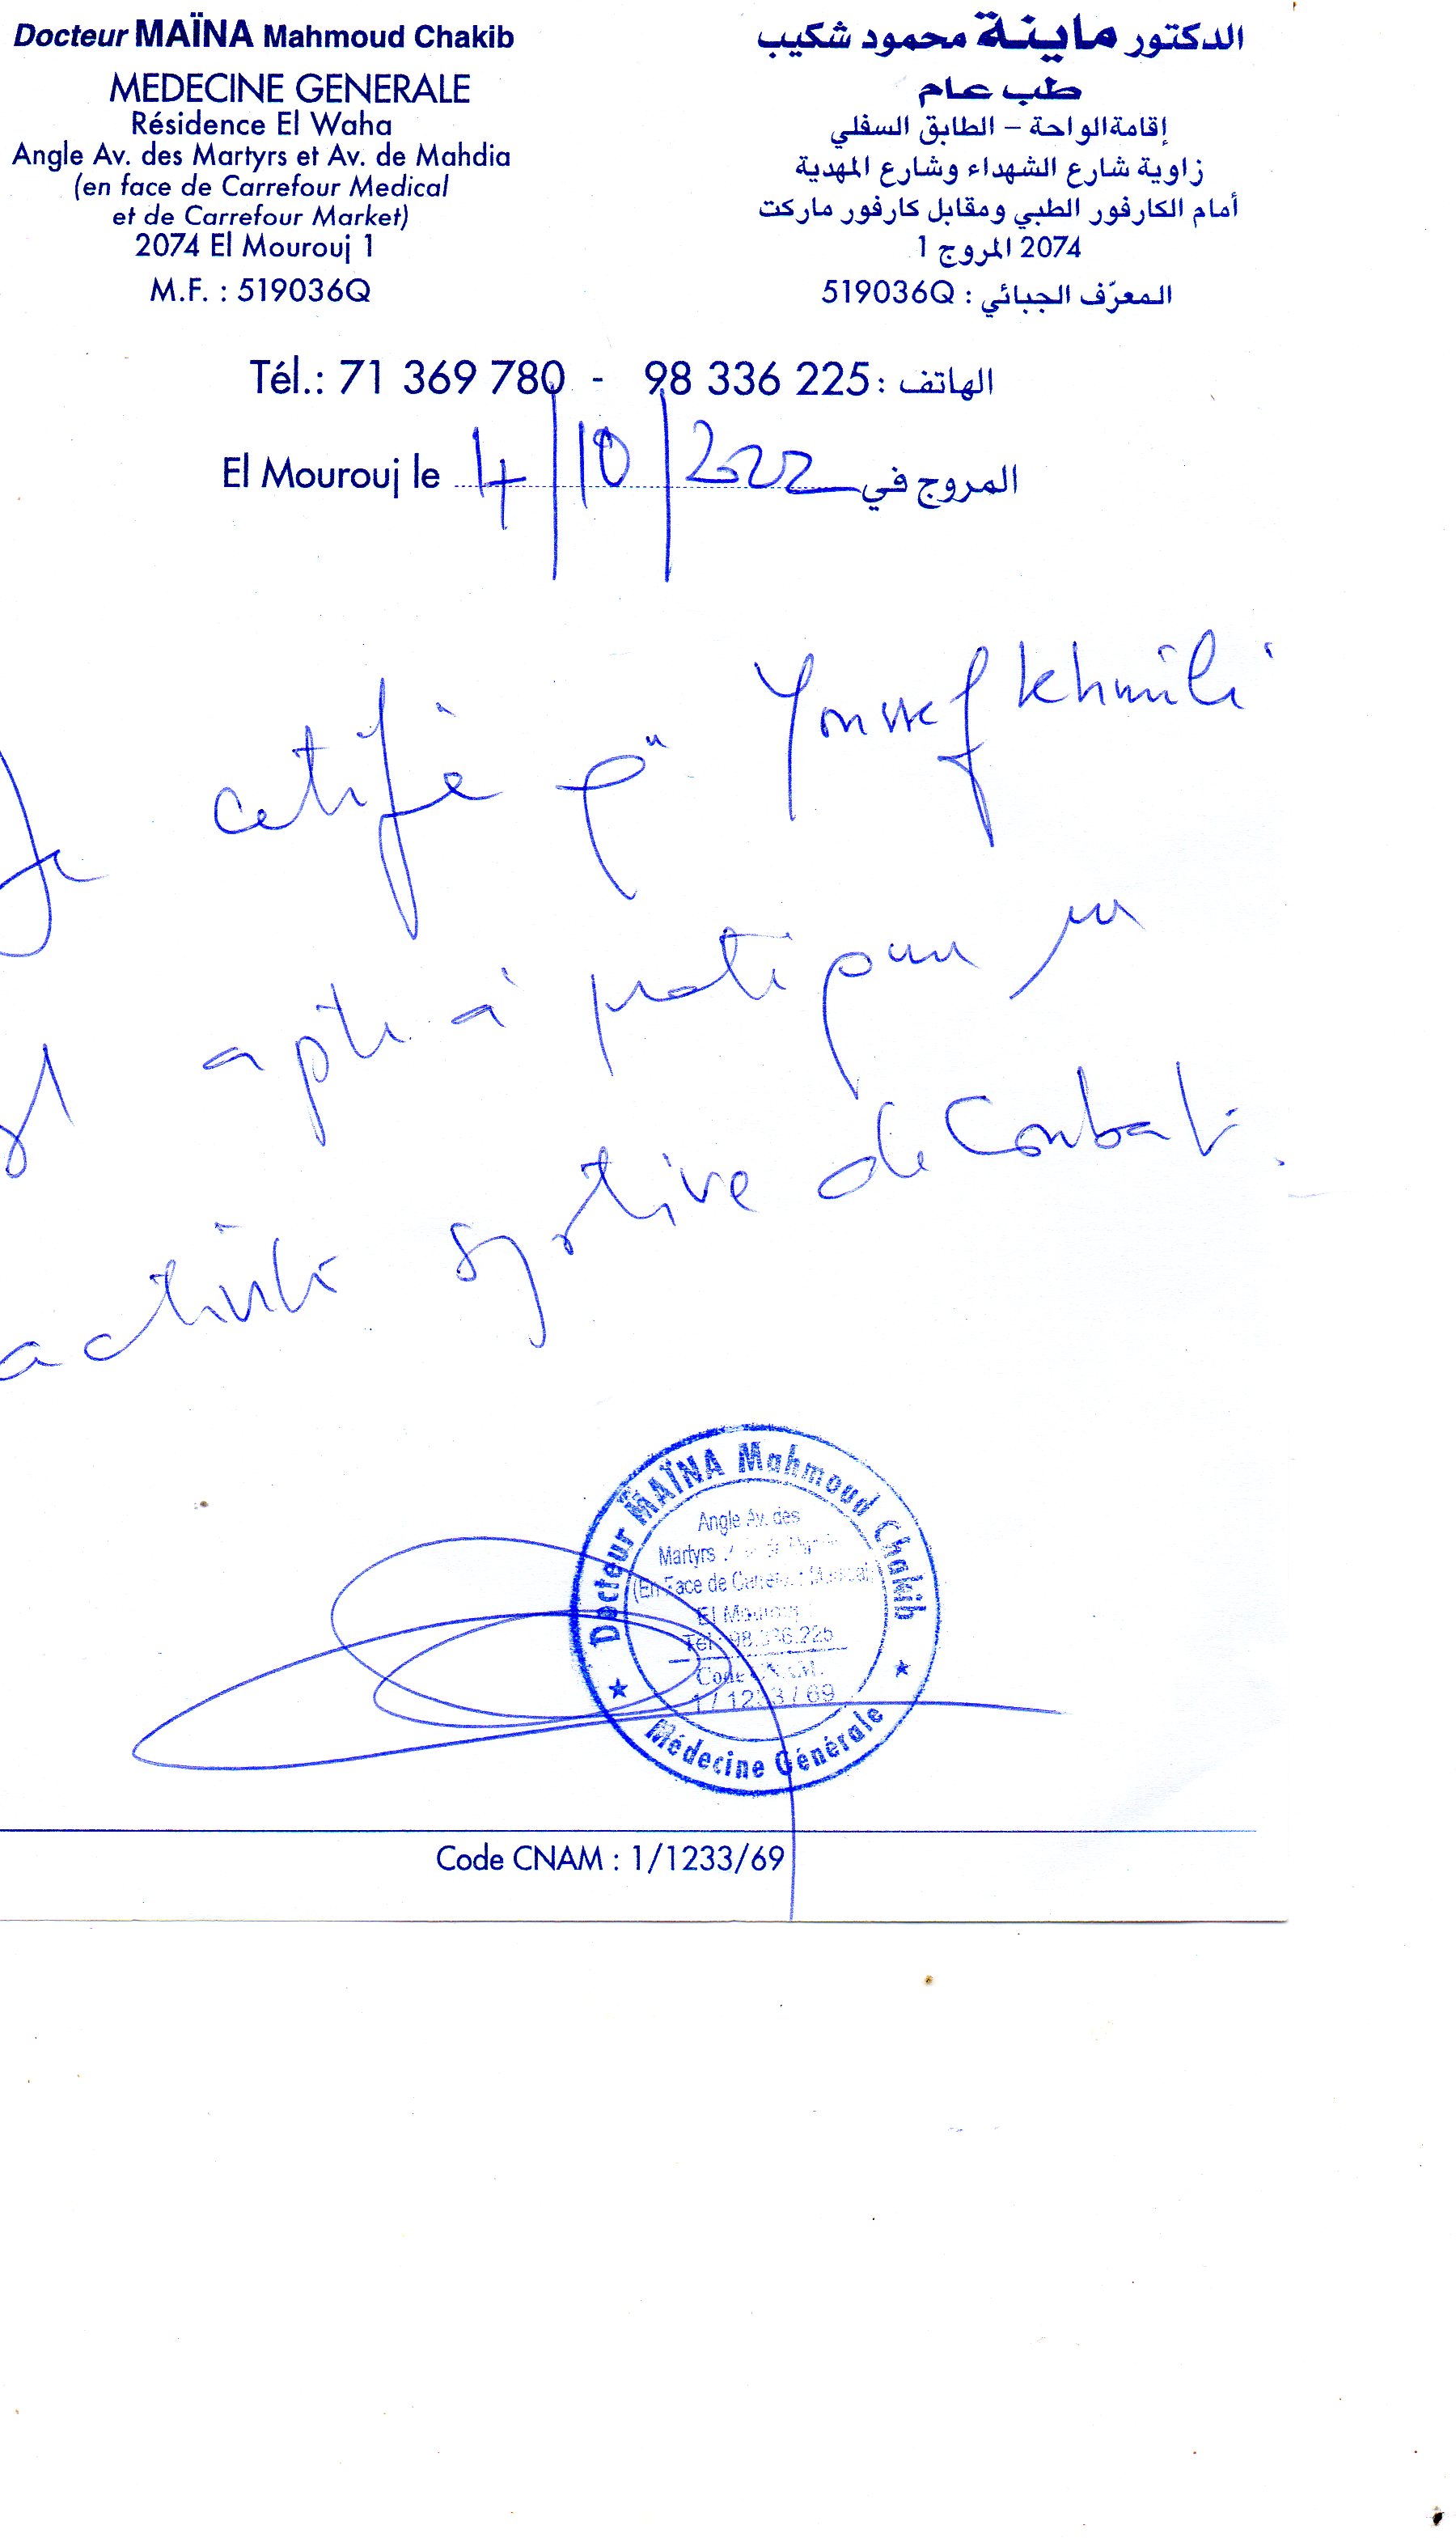 Docteur MAÏNA Mahmoud Chakib
MEDECINE GENERALE
Résidence El Waha
Angle Av. des Martyrs et Av. de Mahdia
(en face de Carrefour Medical
et de Carrefour Market)
2074 El Mourouj 1
M.F. : 519036Q
الدكتور ماينة محمود شكيب
طب عام
إقامة الواحة – الطابق السفلي
زاوية شارع الشهداء وشارع المهدية
أمام الكارفور الطبي ومقابل كارفور ماركت
2074 المروج 1
المعرّف الجبائي : 519036Q
Tél.: 71 369 780 - 98 336 225 : الهاتف
El Mourouj le 4/10/2022 المروج في
Je certifie q" Youssef Khmili
est apte à pratiquer un
activité sportive de Combat.
Docteur MAÏNA Mahmoud Chakib
Angle Av. des
Martyrs
(En Face de
El Mourouj
Tél : 98.336.225
Code CNAM.
1 / 1233 / 69
Médecine Générale
Code CNAM : 1/1233/69